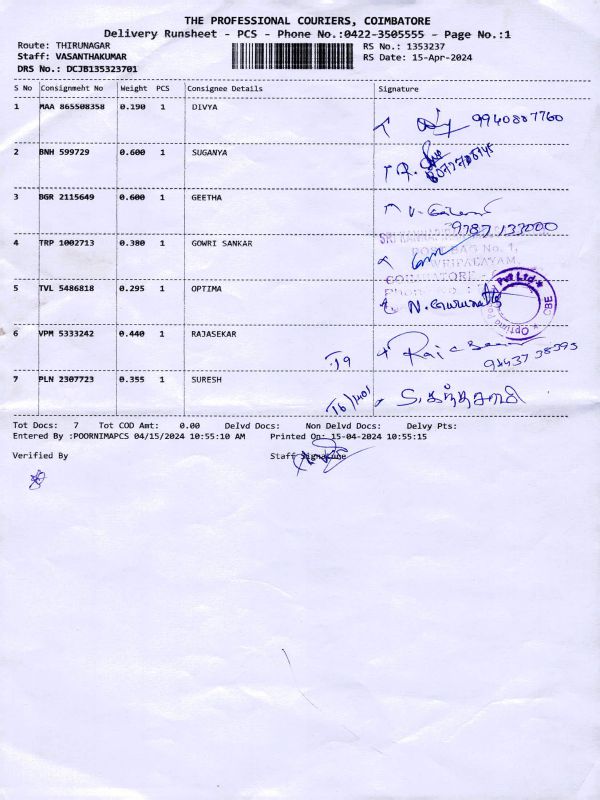 THE PROFESSIONAL COURIERS, COIMBATORE
Delivery Runsheet - PCS - Phone No.:0422-3505555 - Page No.:1
Route: THIRUNAGAR RS No.: 1353237
Staff: VASANTHAKUMAR RS Date: 15-Apr-2024
DRS No.: DCJB135323701
S No Consignment No Weight PCS Consignee Details Signature
1 MAA 865508358 0.190 1 DIVYA
9940807760
2 BNH 599729 0.600 1 SUGANYA
3 BGR 2115649 0.600 1 GEETHA
9787 133000
4 TRP 1002713 0.380 1 GOWRI SANKAR
POST BAG No. 1,
COIMBATORE
5 TVL 5486818 0.295 1 OPTIMA
Pvt Ltd * CBE * Optima
6 VPM 5333242 0.440 1 RAJASEKAR
T9
7 PLN 2307723 0.355 1 SURESH
T6/401 S.கந்தசாமி
Tot Docs: 7 Tot COD Amt: 0.00 Delvd Docs: Non Delvd Docs: Delvy Pts:
Entered By :POORNIMAPCS 04/15/2024 10:55:10 AM Printed On: 15-04-2024 10:55:15
Verified By Staff Signature